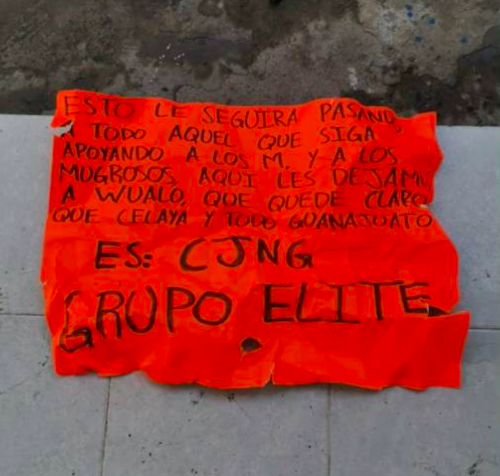 ESTO LE SEGUIRA PASANDO
A TODO AQUEL QUE SIGA
APOYANDO A LOS M. Y A LOS
MUGROSOS AQUI LES DEJAMO
A WUALO, QUE QUEDE CLARO
QUE CELAYA Y TODO GUANAJUATO
ES: CJNG
GRUPO ELITE